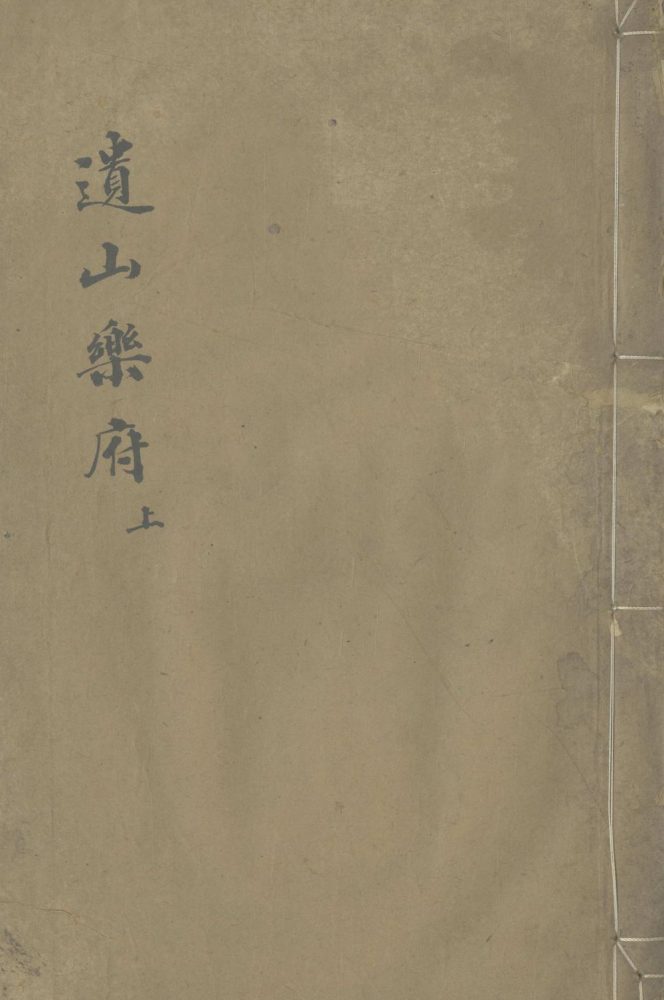 遺山樂府上